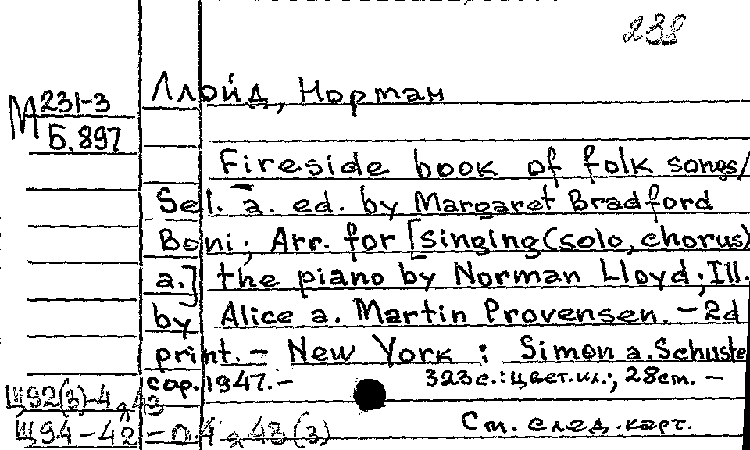 238
Ллойд, Норман
М 231-3
Б.897
Fireside book of folk songs/
Sel. a. ed. by Margaret Bradford
Boni; Arr. for [singing (solo, chorus)
a.] the piano by Norman Lloyd; Ill.
by Alice a. Martin Provensen. – 2d
print. – New York : Simon a. Schuste
cop. 1947. – 323 с. : цвет. ил.; 28 см. –
Щ92(3)-4
Щ94-42
См. след. карт.